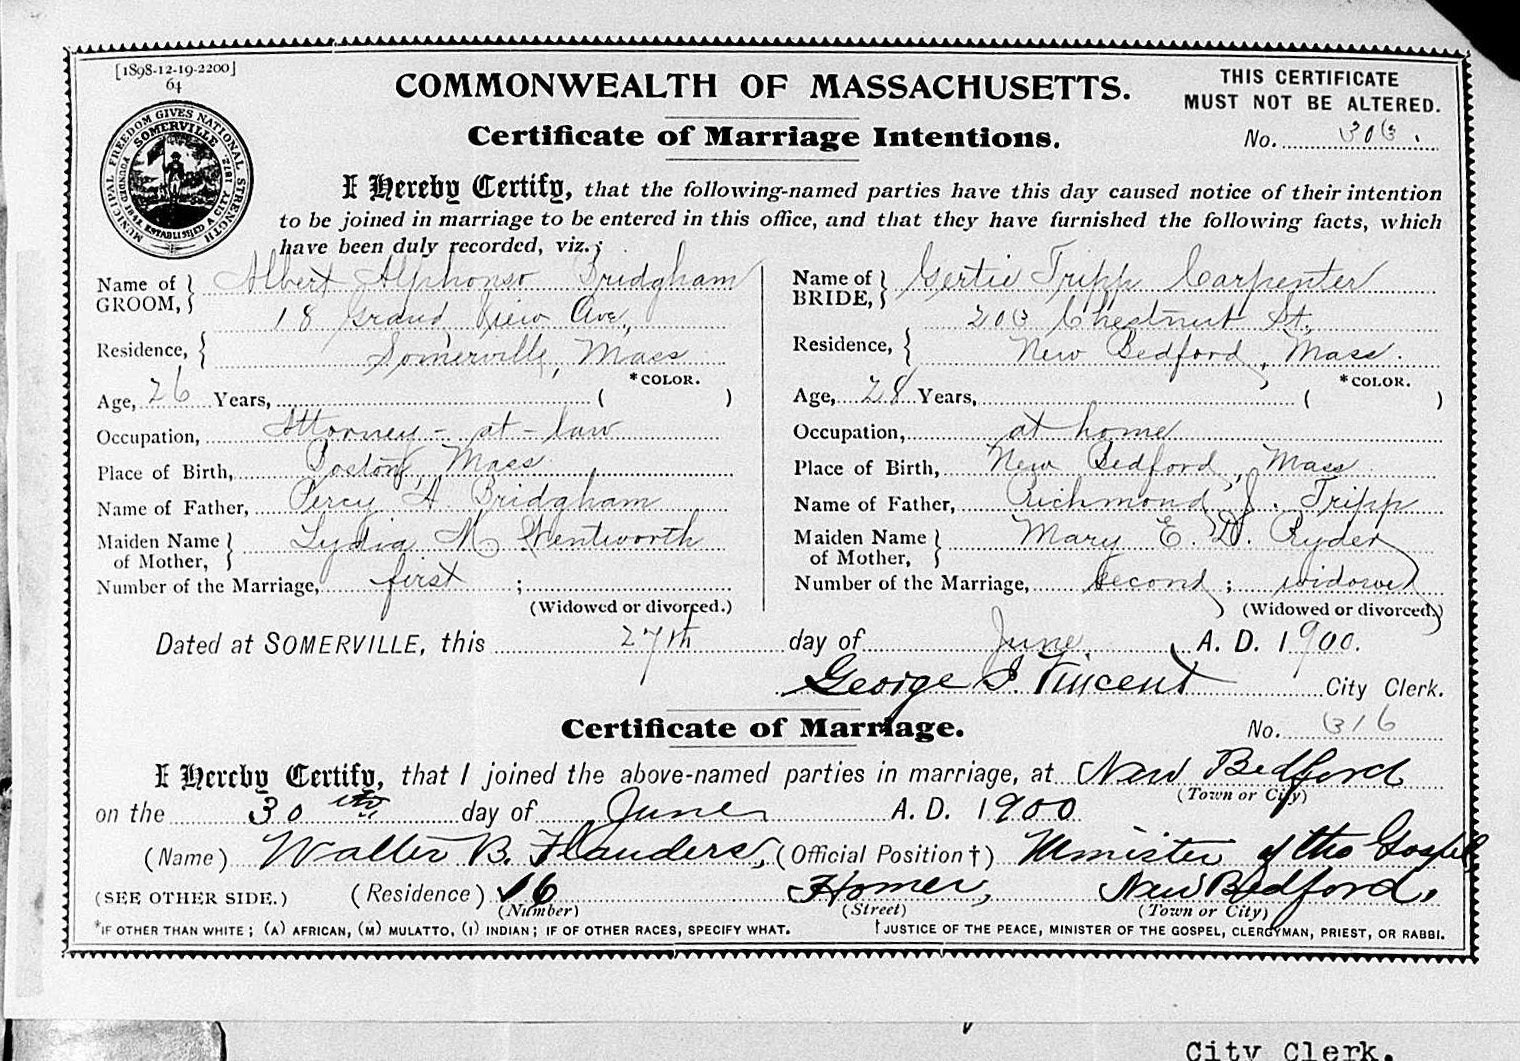 [1898-12-19-2200]
64
COMMONWEALTH OF MASSACHUSETTS.
THIS CERTIFICATE
MUST NOT BE ALTERED.
Certificate of Marriage Intentions.
No. 303.
MUNICIPAL FREEDOM GIVES NATIONAL STRENGTH
SOMERVILLE
FOUNDED 1842. ESTABLISHED A CITY 1872
I Hereby Certify, that the following-named parties have this day caused notice of their intention
to be joined in marriage to be entered in this office, and that they have furnished the following facts, which
have been duly recorded, viz.:
Name of GROOM, Albert Alphonso Bridgham
Residence, 18 Grand View Ave.,
Somerville, Mass
*COLOR.
Age, 26 Years, ( )
Occupation, Attorney-at-law
Place of Birth, Boston, Mass
Name of Father, Percy A. Bridgham
Maiden Name of Mother, Lydia M Wentworth
Number of the Marriage, first ;
(Widowed or divorced.)
Name of BRIDE, Gertie Tripp Carpenter
Residence, 203 Chestnut St.,
New Bedford, Mass.
*COLOR.
Age, 28 Years, ( )
Occupation, at home
Place of Birth, New Bedford, Mass
Name of Father, Richmond J. Tripp
Maiden Name of Mother, Mary E. D. Ryder
Number of the Marriage, second ; widowed
(Widowed or divorced.)
Dated at SOMERVILLE, this 27th day of June A. D. 1900.
George I. Vincent City Clerk.
Certificate of Marriage.
No. 316
I Hereby Certify, that I joined the above-named parties in marriage, at New Bedford
(Town or City)
on the 30th day of June A. D. 1900
(Name) Walter B. Flanders, (Official Position†) Minister of the Gospel
(SEE OTHER SIDE.) (Residence) 16 Homer, New Bedford.
(Number) (Street) (Town or City)
*IF OTHER THAN WHITE; (A) AFRICAN, (M) MULATTO, (I) INDIAN; IF OF OTHER RACES, SPECIFY WHAT. †JUSTICE OF THE PEACE, MINISTER OF THE GOSPEL, CLERGYMAN, PRIEST, OR RABBI.
City Clerk.